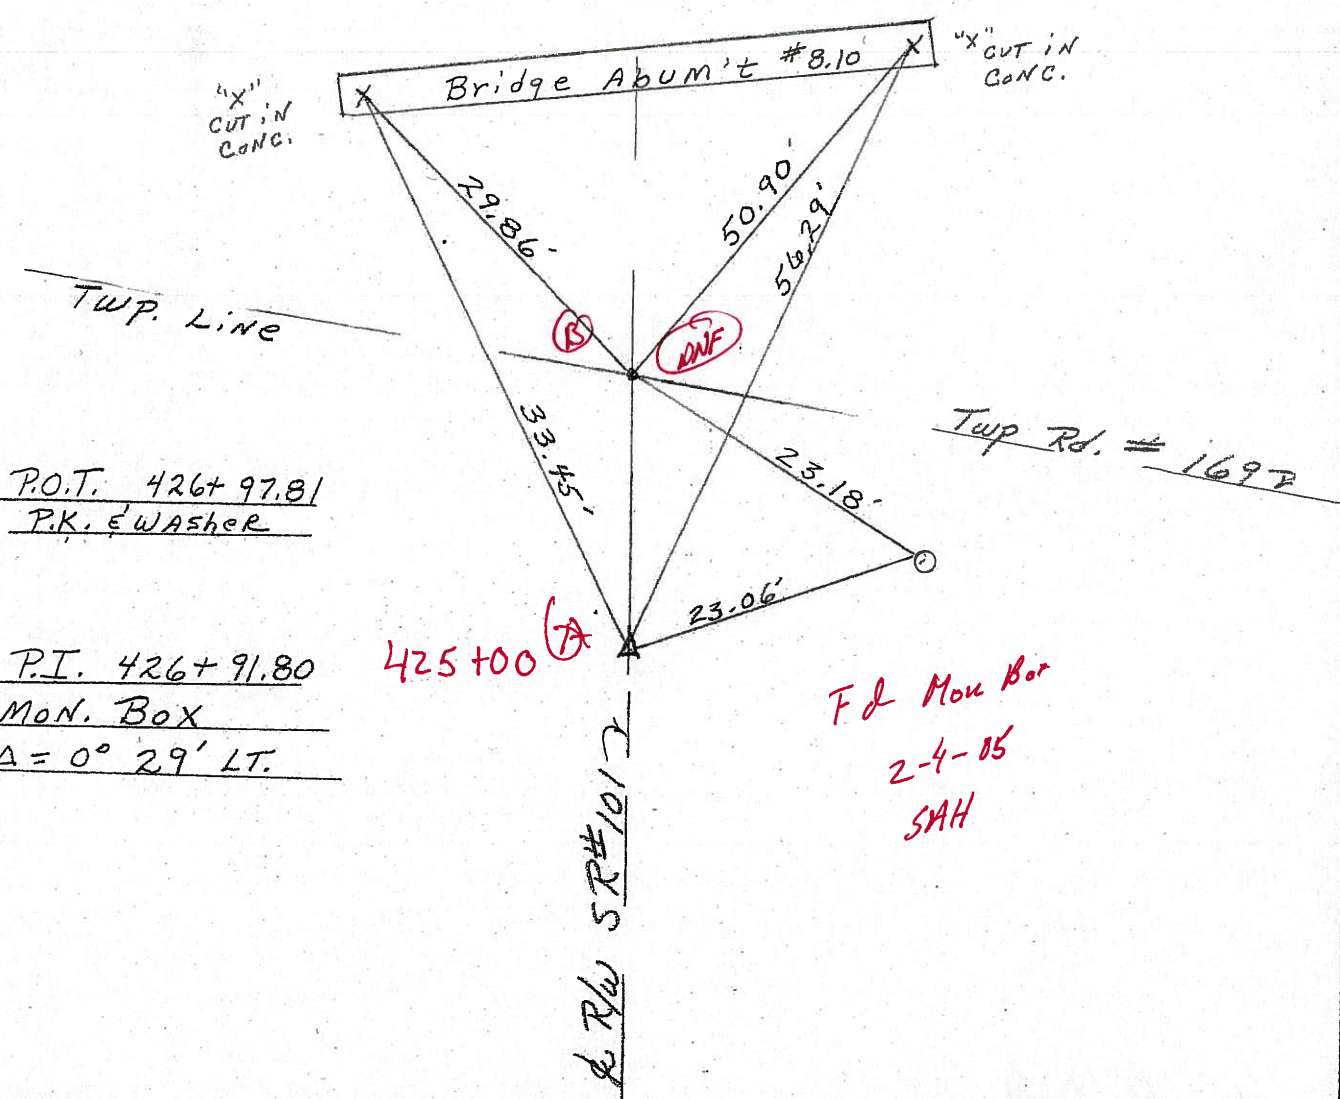 "X"
CUT iN
CONC.
Bridge Abum't #8.10
"X"
CUT iN
CONC.
29.86'
50.90'
56.29'
TWP. LiNe
B
DNF
33.45'
Twp Rd. # 169
23.18'
P.O.T. 426+97.81
P.K. & WAsheR
23.06'
425+00
A
P.I. 426+91.80
MON. BOX
Δ = 0° 29' LT.
Fd Mon Box
2-4-05
SAH
℄ R/W SR#101